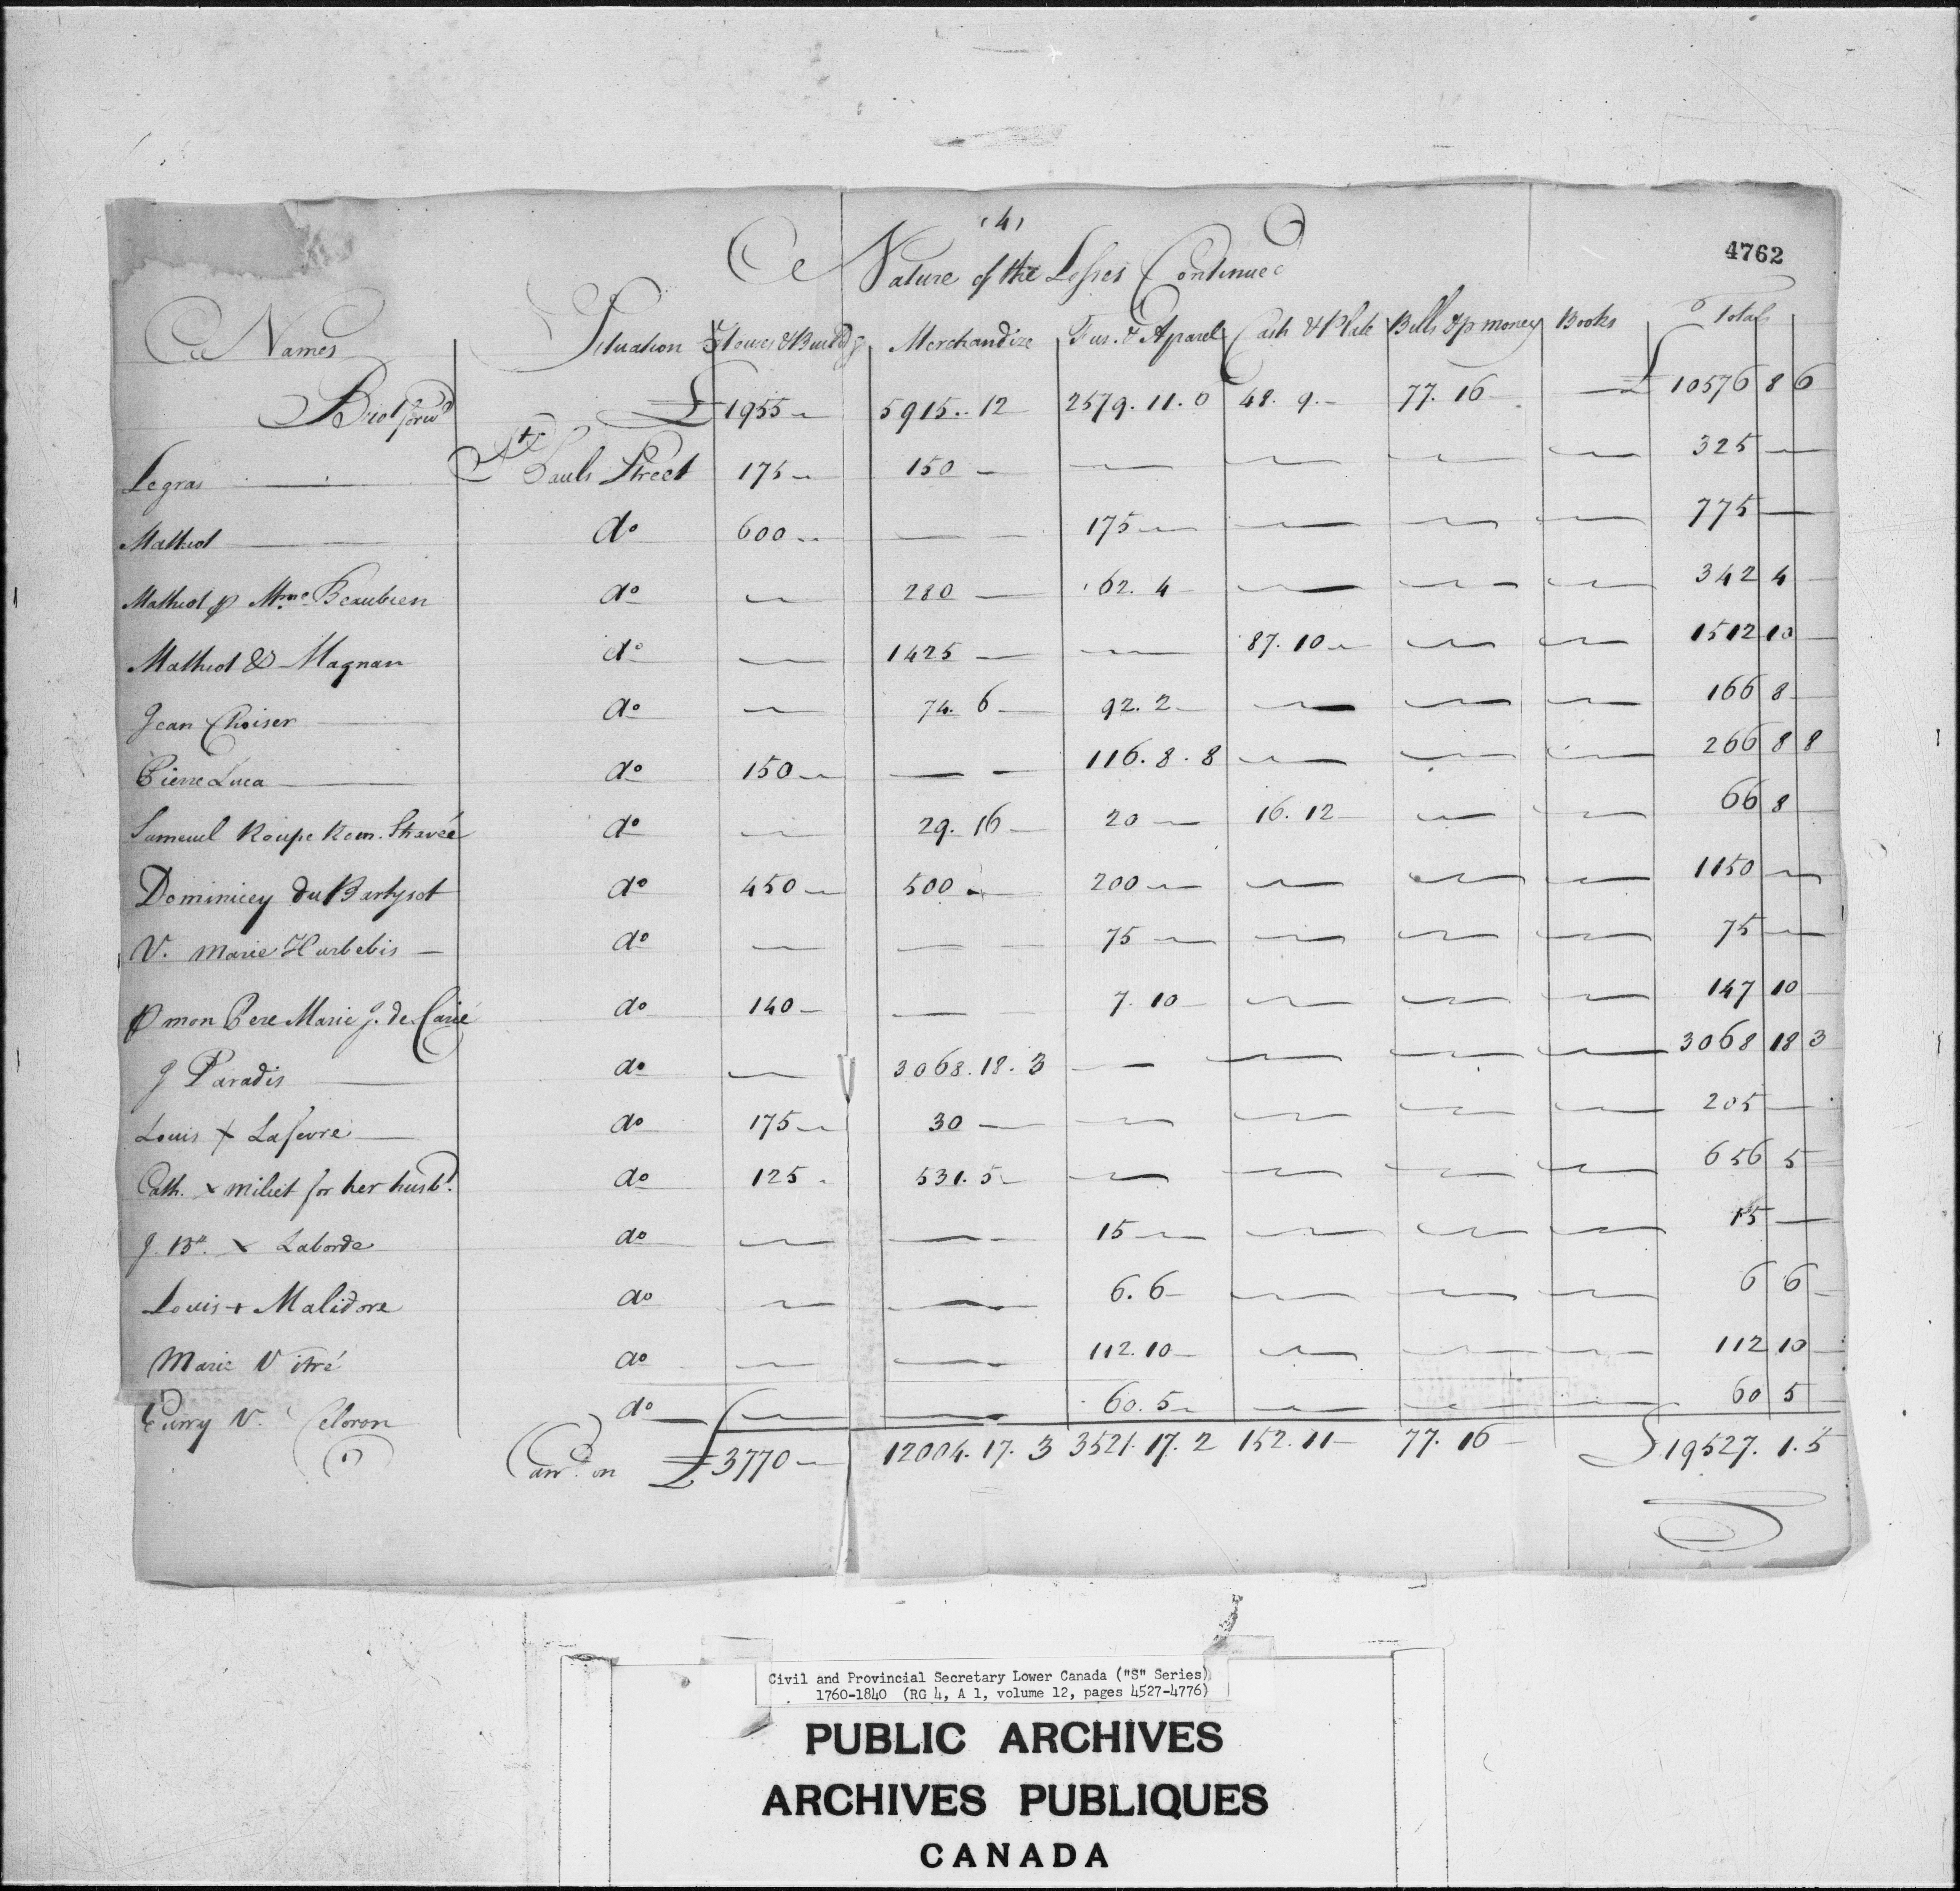 (4)
4762
Nature of the Losses Continued
Names Situation Houses & Buildg Merchandize Fur. & Aparel Cash & Plate Bills & p money Books Total
Brot forwd £ 1955 5915.. 12 2579. 11. 0 48. 9. 77. 16 £ 10576 8 6
Legras St Pauls Street 175 150 325
Mathiot do 600 175 775
Mathiot p Mme Beaubien do 280 62. 4 342 4
Mathiot & Magnan do 1425 87. 10 1512 10
Jean Choiser do 74. 6 92. 2 166 8
Pierre Luca do 150 116. 8. 8 266 8 8
Samuel Roupe Rom. do 29. 16 20 16. 12 66 8
Dominicey du Bartysot do 450 500 200 1150
V. Marie Harbebis do 75 75
p mon Pere Marie J. de Carié do 140 7. 10 147 10
J Paradis do 3068. 18. 3 3068 18 3
Louis + Lafevre do 175 30 205
Cath. x miliet for her husbd. do 125 531. 5 656 5
J. Bte. x Laborde do 15 15
Louis + Malidore do 6. 6 6 6
Marie Vitré do 112. 10 112 10
Curry V. Celoron do 60. 5 60 5
Carrd. on £ 3770 12004. 17. 3 3521. 17. 2 152. 11 77. 16 £ 19527. 1. 5
Civil and Provincial Secretary Lower Canada ("S" Series)
1760-1840 (RG 4, A 1, volume 12, pages 4527-4776)
PUBLIC ARCHIVES
ARCHIVES PUBLIQUES
CANADA